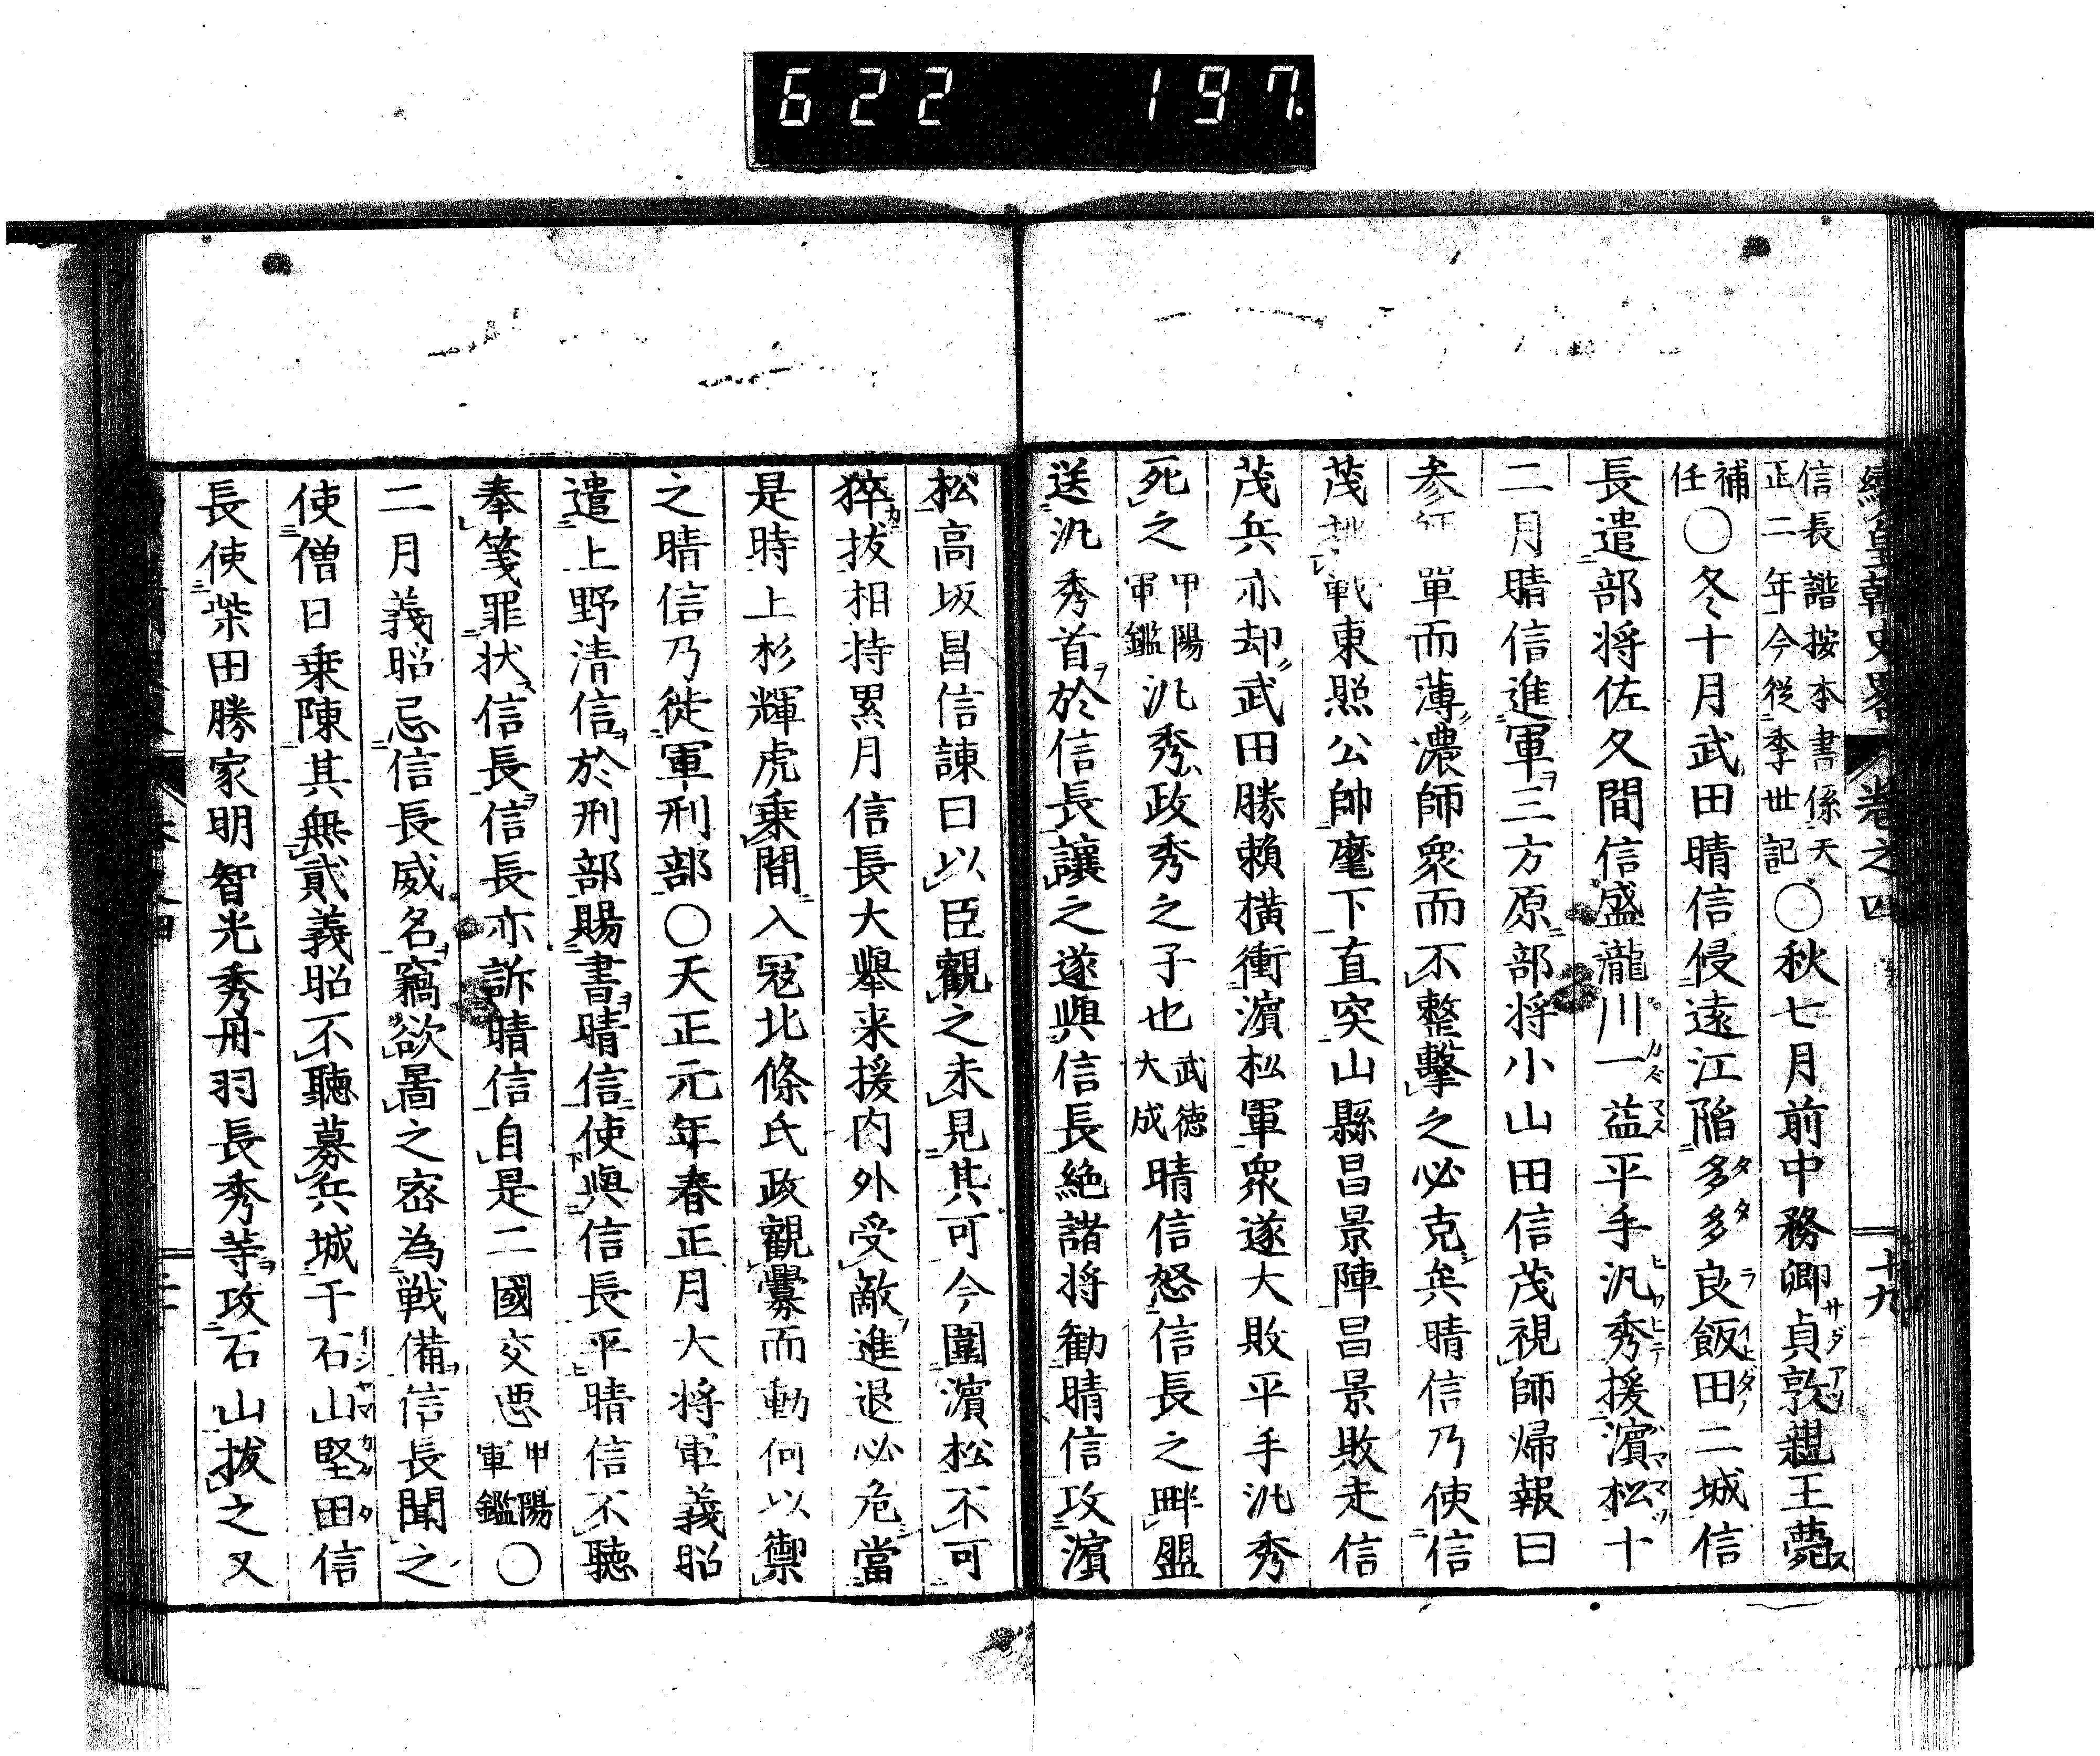 622 197.
續皇朝史畧 卷之四 十九
信長譜按本書係天
正二年今従季世記
○秋七月前中務卿貞敦親王薨
補
任
○冬十月武田晴信侵遠江陷多多良飯田二城信
長遣部将佐久間信盛瀧川一益平手汎秀援濵松十
二月晴信進軍三方原部将小山田信茂視師歸報曰
参 單而薄濃師衆而不整擊之必克矣晴信乃使信
茂挑戰東照公帥麾下直突山縣昌景陣昌景敗走信
茂兵亦却武田勝頼横衝濵松軍衆遂大敗平手汎秀
死之
甲陽
軍鑑
汎秀政秀之子也
武徳
大成
晴信怒信長之畔盟
送汎秀首於信長讓之遂與信長絶諸将勧晴信攻濵
松高坂昌信諌曰以臣觀之未見其可今圍濵松不可
猝拔相持累月信長大舉来援内外受敵進退必危當
是時上杉輝虎乗間入冦北條氏政觀釁而動何以禦
之晴信乃徙軍刑部○天正元年春正月大将軍義昭
遣上野清信於刑部賜書晴信使與信長平晴信不聽
奉箋罪状信長信長亦訴晴信自是二國交悪
甲陽
軍鑑
○
二月義昭忌信長威名竊欲圖之宻為戦備信長聞之
使僧日乗陳其無貳義昭不聽募兵城于石山堅田信
長使柴田勝家明智光秀丹羽長秀等攻石山拔之又